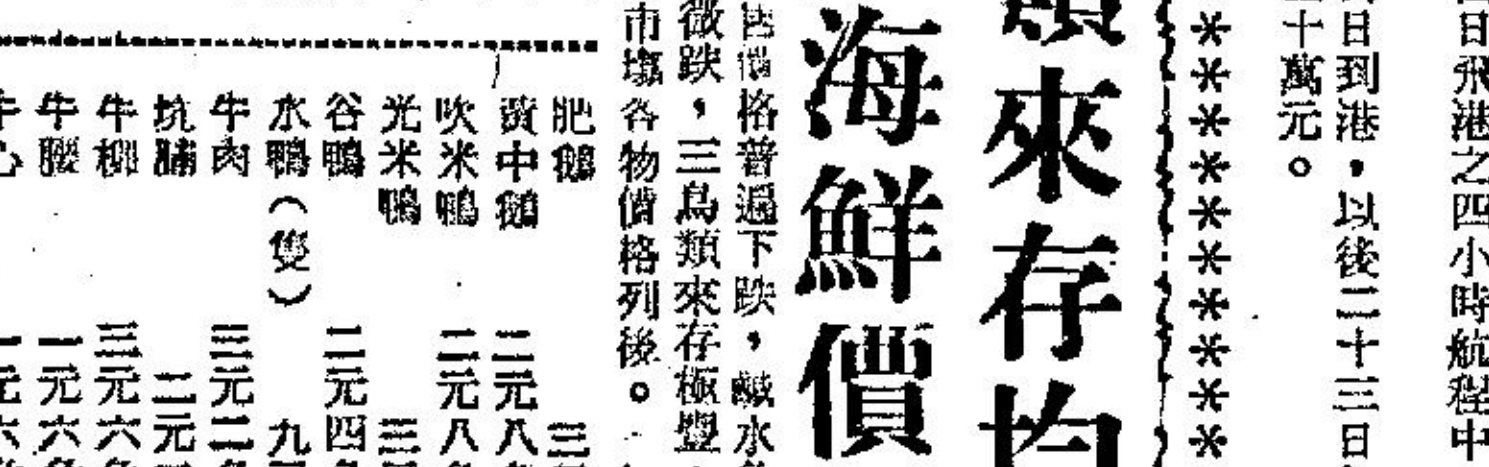 日飛港之四小時航程中
日到港，以後二十三日
十萬元。
＊＊＊＊＊＊＊＊＊＊
類來存均
海鮮價
價格普遍下跌，鹹水
微跌，三鳥類來存極豐
市塲各物價格列後。
肥鵝 三
黃中鵝 二元八
吹米鴨 二元八
光米鴨 三
谷鴨 二元四
水鴨（隻） 九
牛肉 三元二
坑腩 二元
牛柳 三元六
牛腰 一元六
牛心 一元六